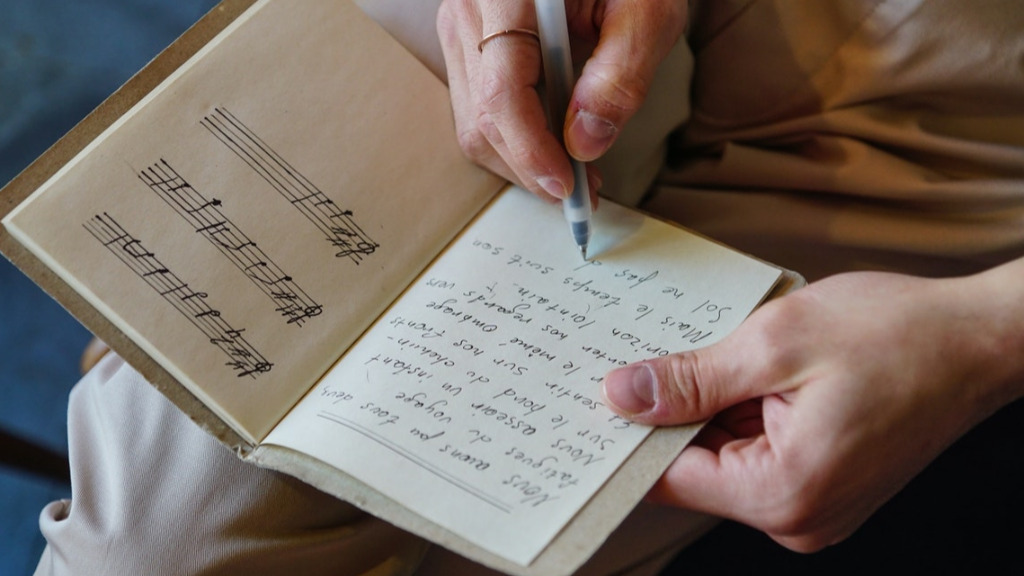 Nous aions pu tous deux
fatigués du voyage
Nous asseoir un instant
sur le bord du chemin-
sentir sur nos fronts
le même ombrage
nos regards vers
lointain.
Mais le temps suit son
Sol ne pas